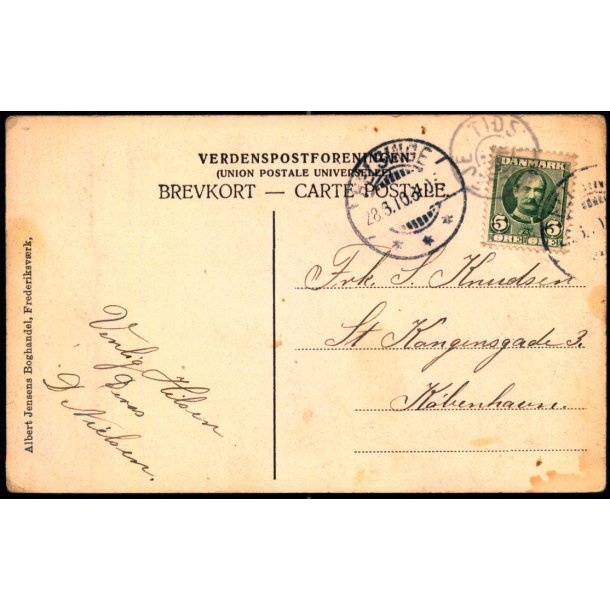 VERDENSPOSTFORENINGEN
(UNION POSTALE UNIVERSELLE)
BREVKORT — CARTE POSTALE
HELSINGE
28.3.10.
TIDS
DANMARK
5 5
ØRE ØRE
Frk. S. Knudsen
St Kongensgade 3.
København.
Venlig Hilsen
Deres
D Nielsen.
Albert Jensens Boghandel, Frederiksværk,